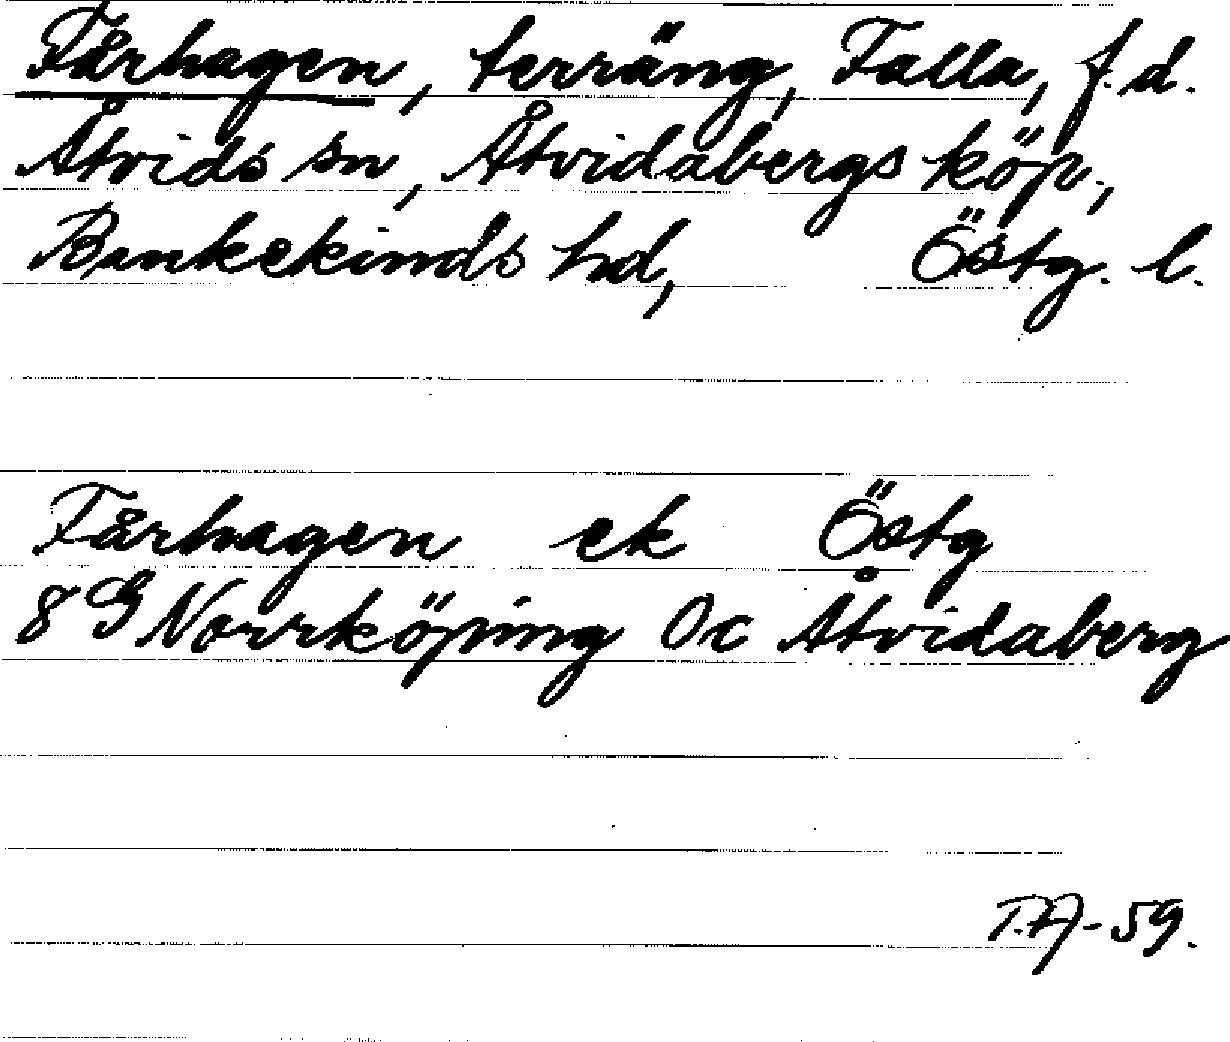 Fårhagen, terräng, Falla, f.d.
Åtvids sn, Åtvidabergs köp.,
Bankekinds hd, Östg. l.
Fårhagen ek Östg
8 G Norrköping 0c Åtvidaberg
T.A-59.